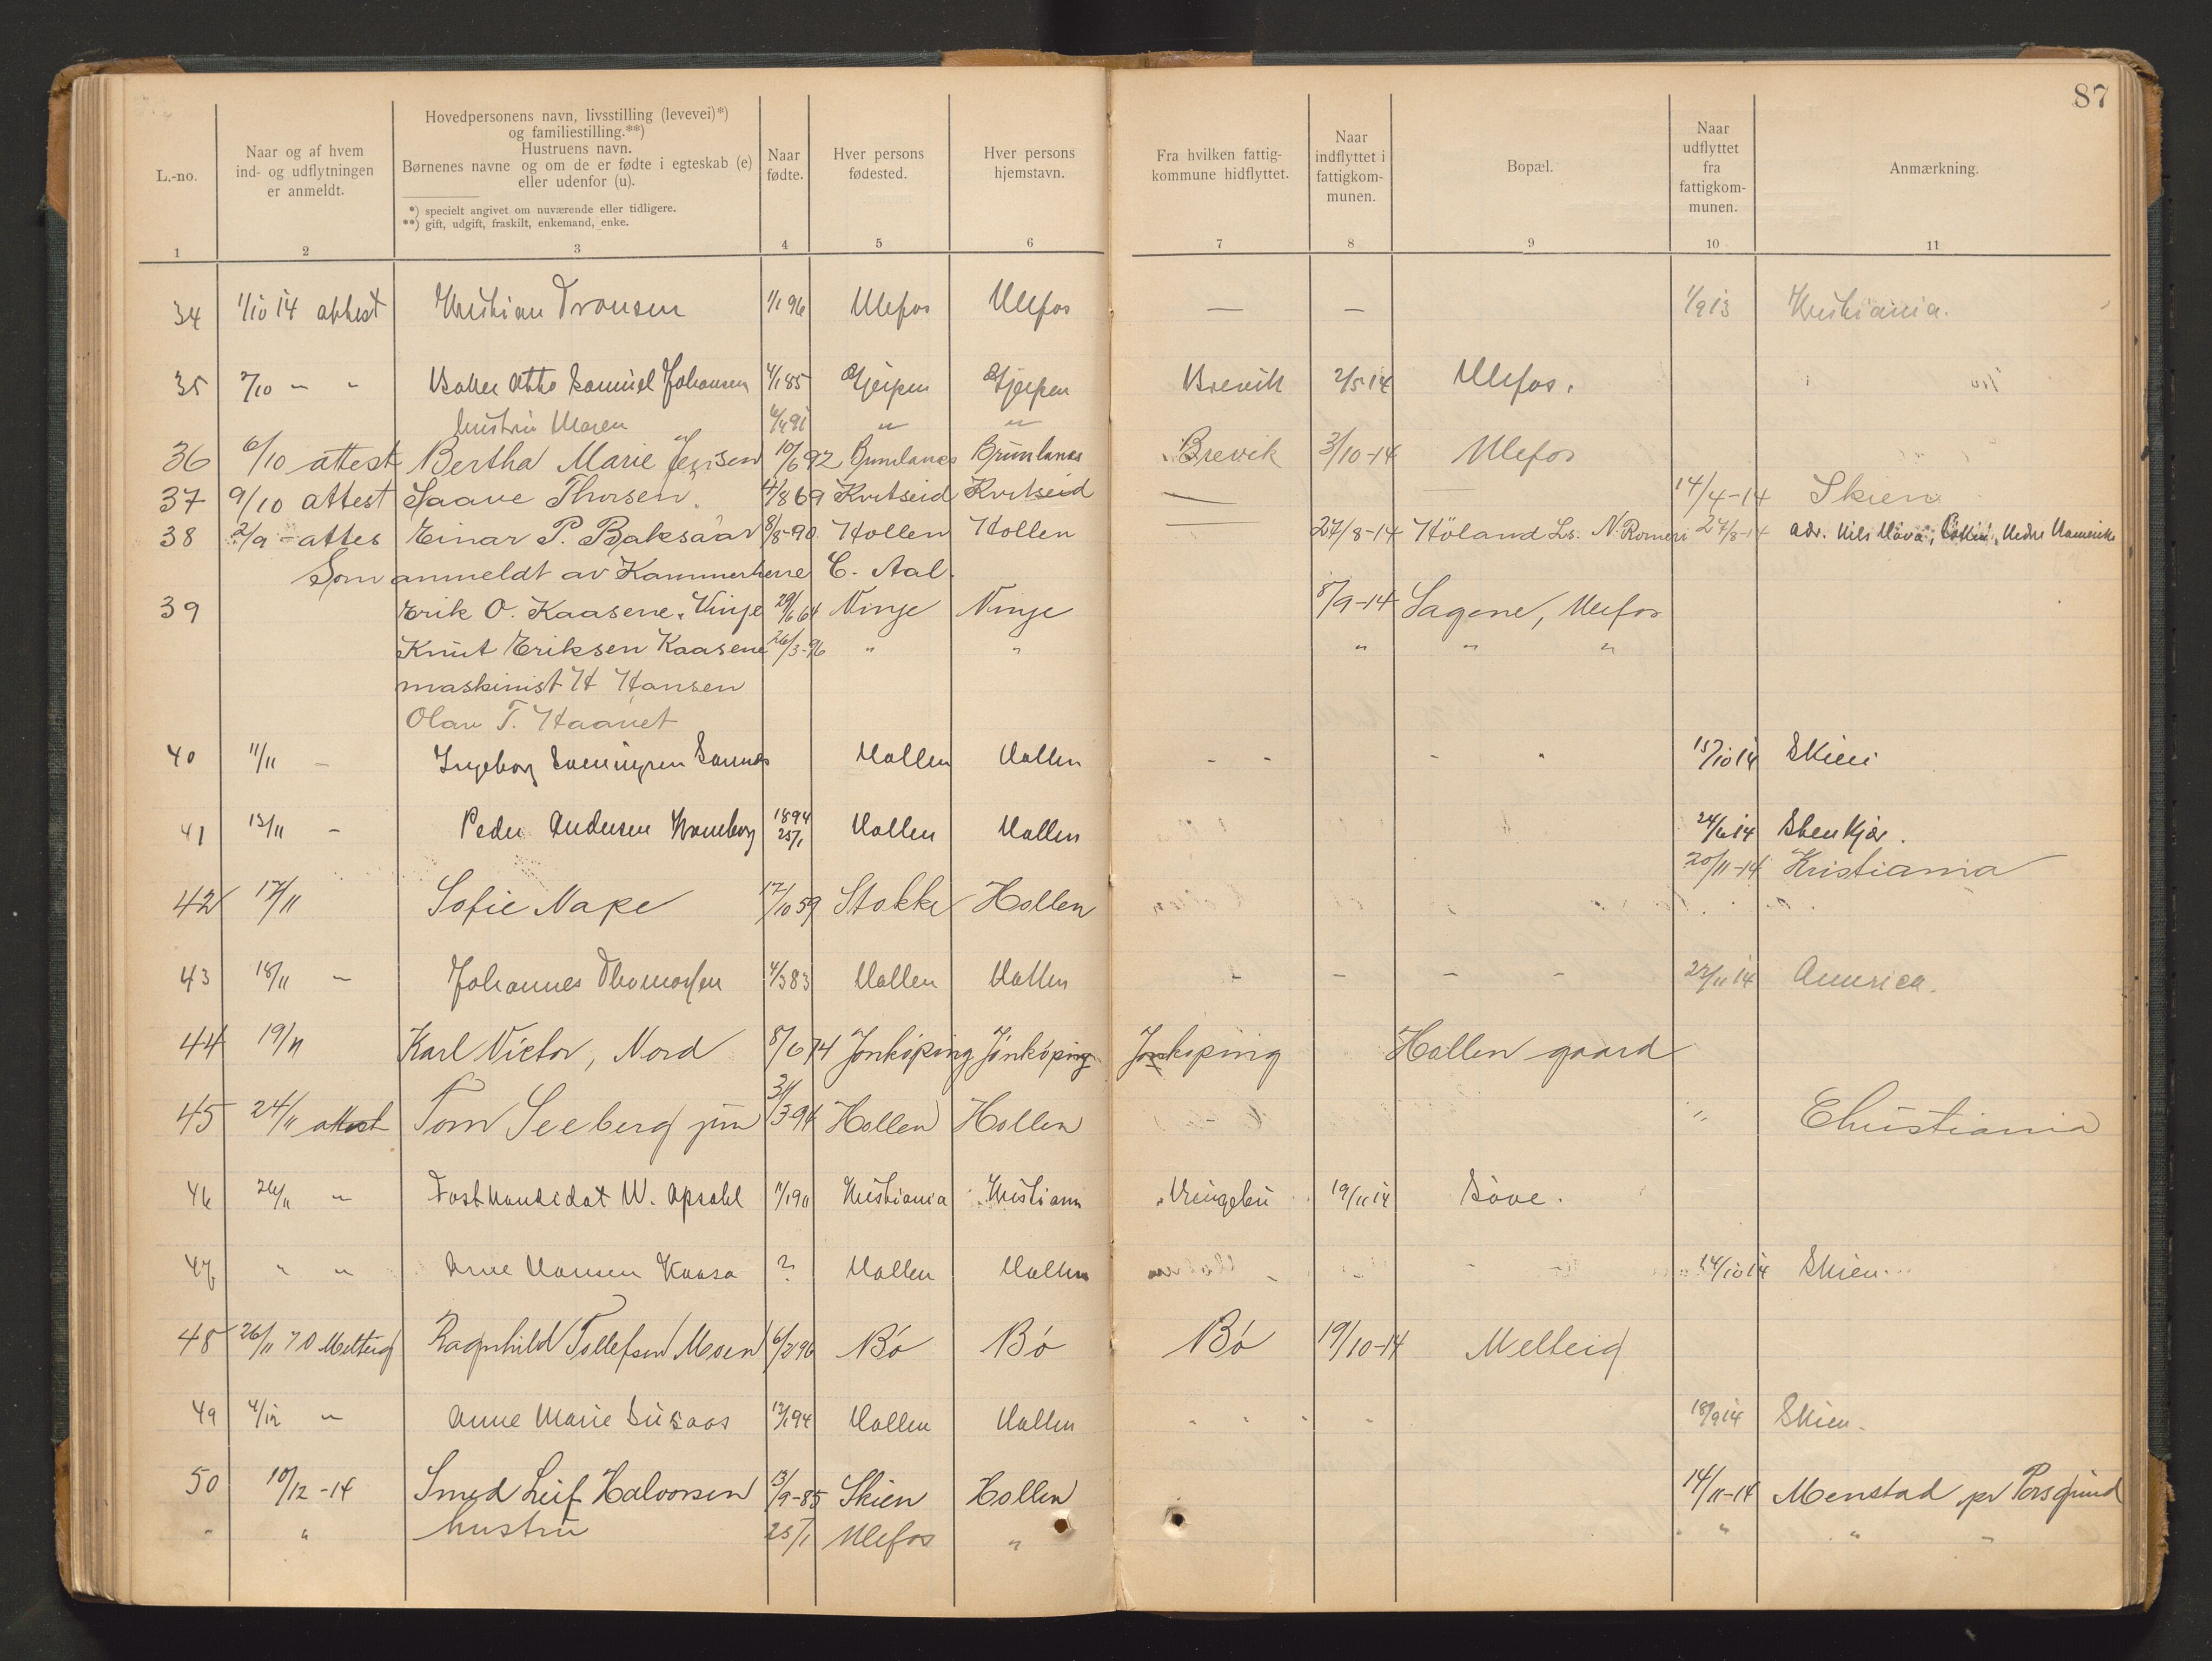 87
L.-no.
Naar og af hvem ind- og udflytningen er anmeldt.
Hovedpersonens navn, livsstilling (levevei)*) og familiestilling.**) Hustruens navn. Børnenes navne og om de er fødte i egteskab (e) eller udenfor (u).
*) specielt angivet om nuværende eller tidligere.
**) gift, udgift, fraskilt, enkemand, enke.
Naar fødte.
Hver persons fødested.
Hver persons hjemstavn.
Fra hvilken fattigkommune hidflyttet.
Naar indflyttet i fattigkommunen.
Bopæl.
Naar udflyttet fra fattigkommunen.
Anmærkning.
1 2 3 4 5 6 7 8 9 10 11
34 1/10 14 attest Kristian Fransen 1/1 96 Ulefos Ulefos — — 1/9 13 Kristiania.
35 2/10 - - Otto Samuel Johansen 4/1 85 Gjerpen Gjerpen Brevik 2/5 14 Ulefos.
hustru Maren " "
36 6/10 attest Bertha Marie Jensen 10/6 92 Brunlanes Brunlanes Brevik 3/10-14 Ulefos
37 9/10 attest Saave Thorsen. 4/8 69 Kvitseid Kvitseid — — 14/4-14 Skien
38 2/9 - attes Einar P. Baksaar 8/8-90 Hollen Hollen — 27/8-14 Höland Ls. N. Romeri 27/8-14 adr. Nils
Som anmeldt av Kammerherre C. Aal.
39 Erik O. Kaasene, Vinje 29/6 64 Vinje Vinje 8/9-14 Sagene, Ulefos
Knut Eriksen Kaasene 26/3-96 " " " " "
maskinist H Hansen
Olav T. Haanet
40 11/11 - Ingeborg Sannes Hollen Hollen - - - " 15/10 14 Skien
41 13/11 - Peder Andersen Kroneborg 1894 25/1 Hollen Hollen 24/6 14 Stenkjær.
20/11-14 Kristiania
42 17/11 Sofie Nape 17/10 59 Stokke Hollen
43 18/11 - Johannes Thomassen 4/3 83 Hollen Hollen - - - - 23/11 14 America.
44 19/11 Karl Victor, Nord 8/6 74 Jonköping Jönköping Jonköping Hollen gaard
45 24/11 attest Tom Seeberg jun 31/3-94 Hollen Hollen " Christiania
46 26/11 " Forstkandidat W. Opsahl 11/1 90 Kristiania Kristiania Ringebu 19/11 14 Söve.
47 " " Arne Hansen Kaasa ? Hollen Hollen - - - 14/10 14 Skien.
48 26/11 Melteig Ragnhild Tollefsen Moen 6/2 96 Bö Bö Bö 19/10-14 Melteig
49 4/12 " Anne Marie Susaas 12/1 94 Hollen Hollen " " " " 18/9 14 Skien.
50 10/12-14 Smed Leif Halvorsen 13/9-85 Skien Hollen 14/11-14 Menstad pr Porsgrund
" " hustru 25/1 Ulefos " " " " "